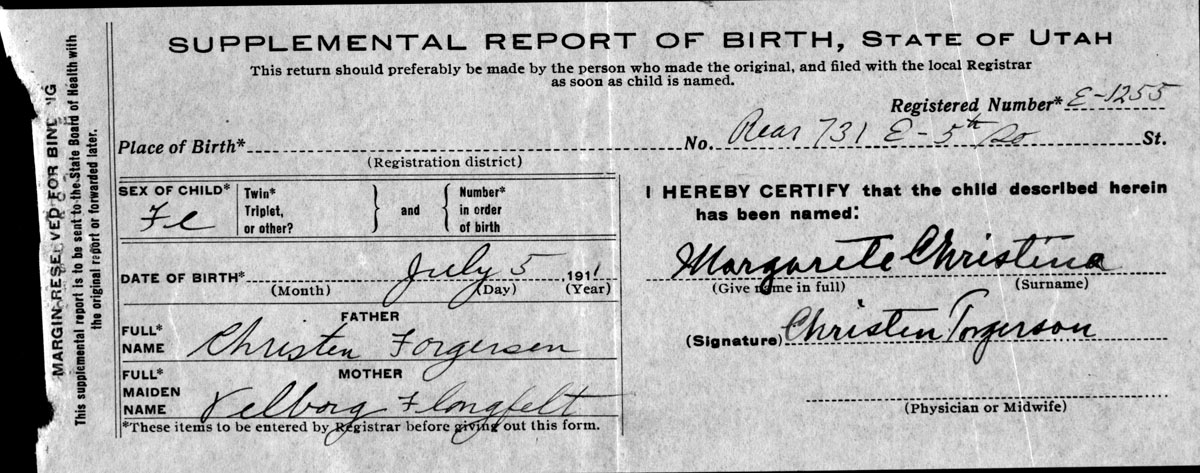 SUPPLEMENTAL REPORT OF BIRTH, STATE OF UTAH
This return should preferably be made by the person who made the original, and filed with the local Registrar
as soon as child is named.
Registered Number* E-1255
Place of Birth* No. Rear 731 E-5th So St.
(Registration district)
SEX OF CHILD* Fe
Twin* Triplet, or other? } and { Number* in order of birth
DATE OF BIRTH* July 5 1911
(Month) (Day) (Year)
FATHER
FULL* NAME Christen Forgersen
MOTHER
FULL* MAIDEN NAME
*These items to be entered by Registrar before giving out this form.
I HEREBY CERTIFY that the child described herein
has been named:
Margarete Christina
(Give name in full) (Surname)
(Signature) Christen Torgerson
(Physician or Midwife)
MARGIN RESERVED FOR BINDING
This supplemental report is to be sent to the State Board of Health with
the original report or forwarded later.